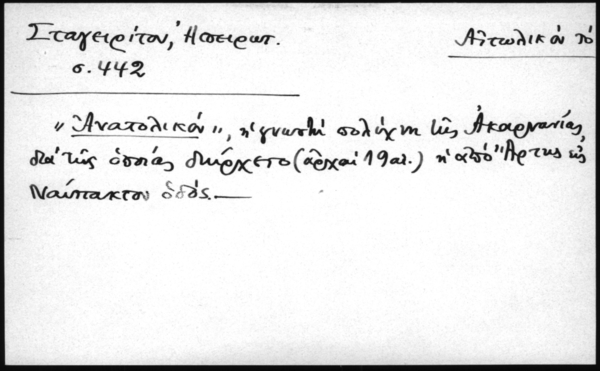 Σταγειρίτου, Ἠπειρωτ.
σ. 442
Αἰτωλικὸν τὸ
"Ἀνατολικόν", ἡ γνωστὴ πολίχνη τῆς Ἀκαρνανίας,
διὰ τῆς ὁποίας διήρχετο (ἀρχαὶ 19 αἰ.) ἡ ἀπὸ Ἄρτης εἰς
Ναύπακτον ὁδός.—